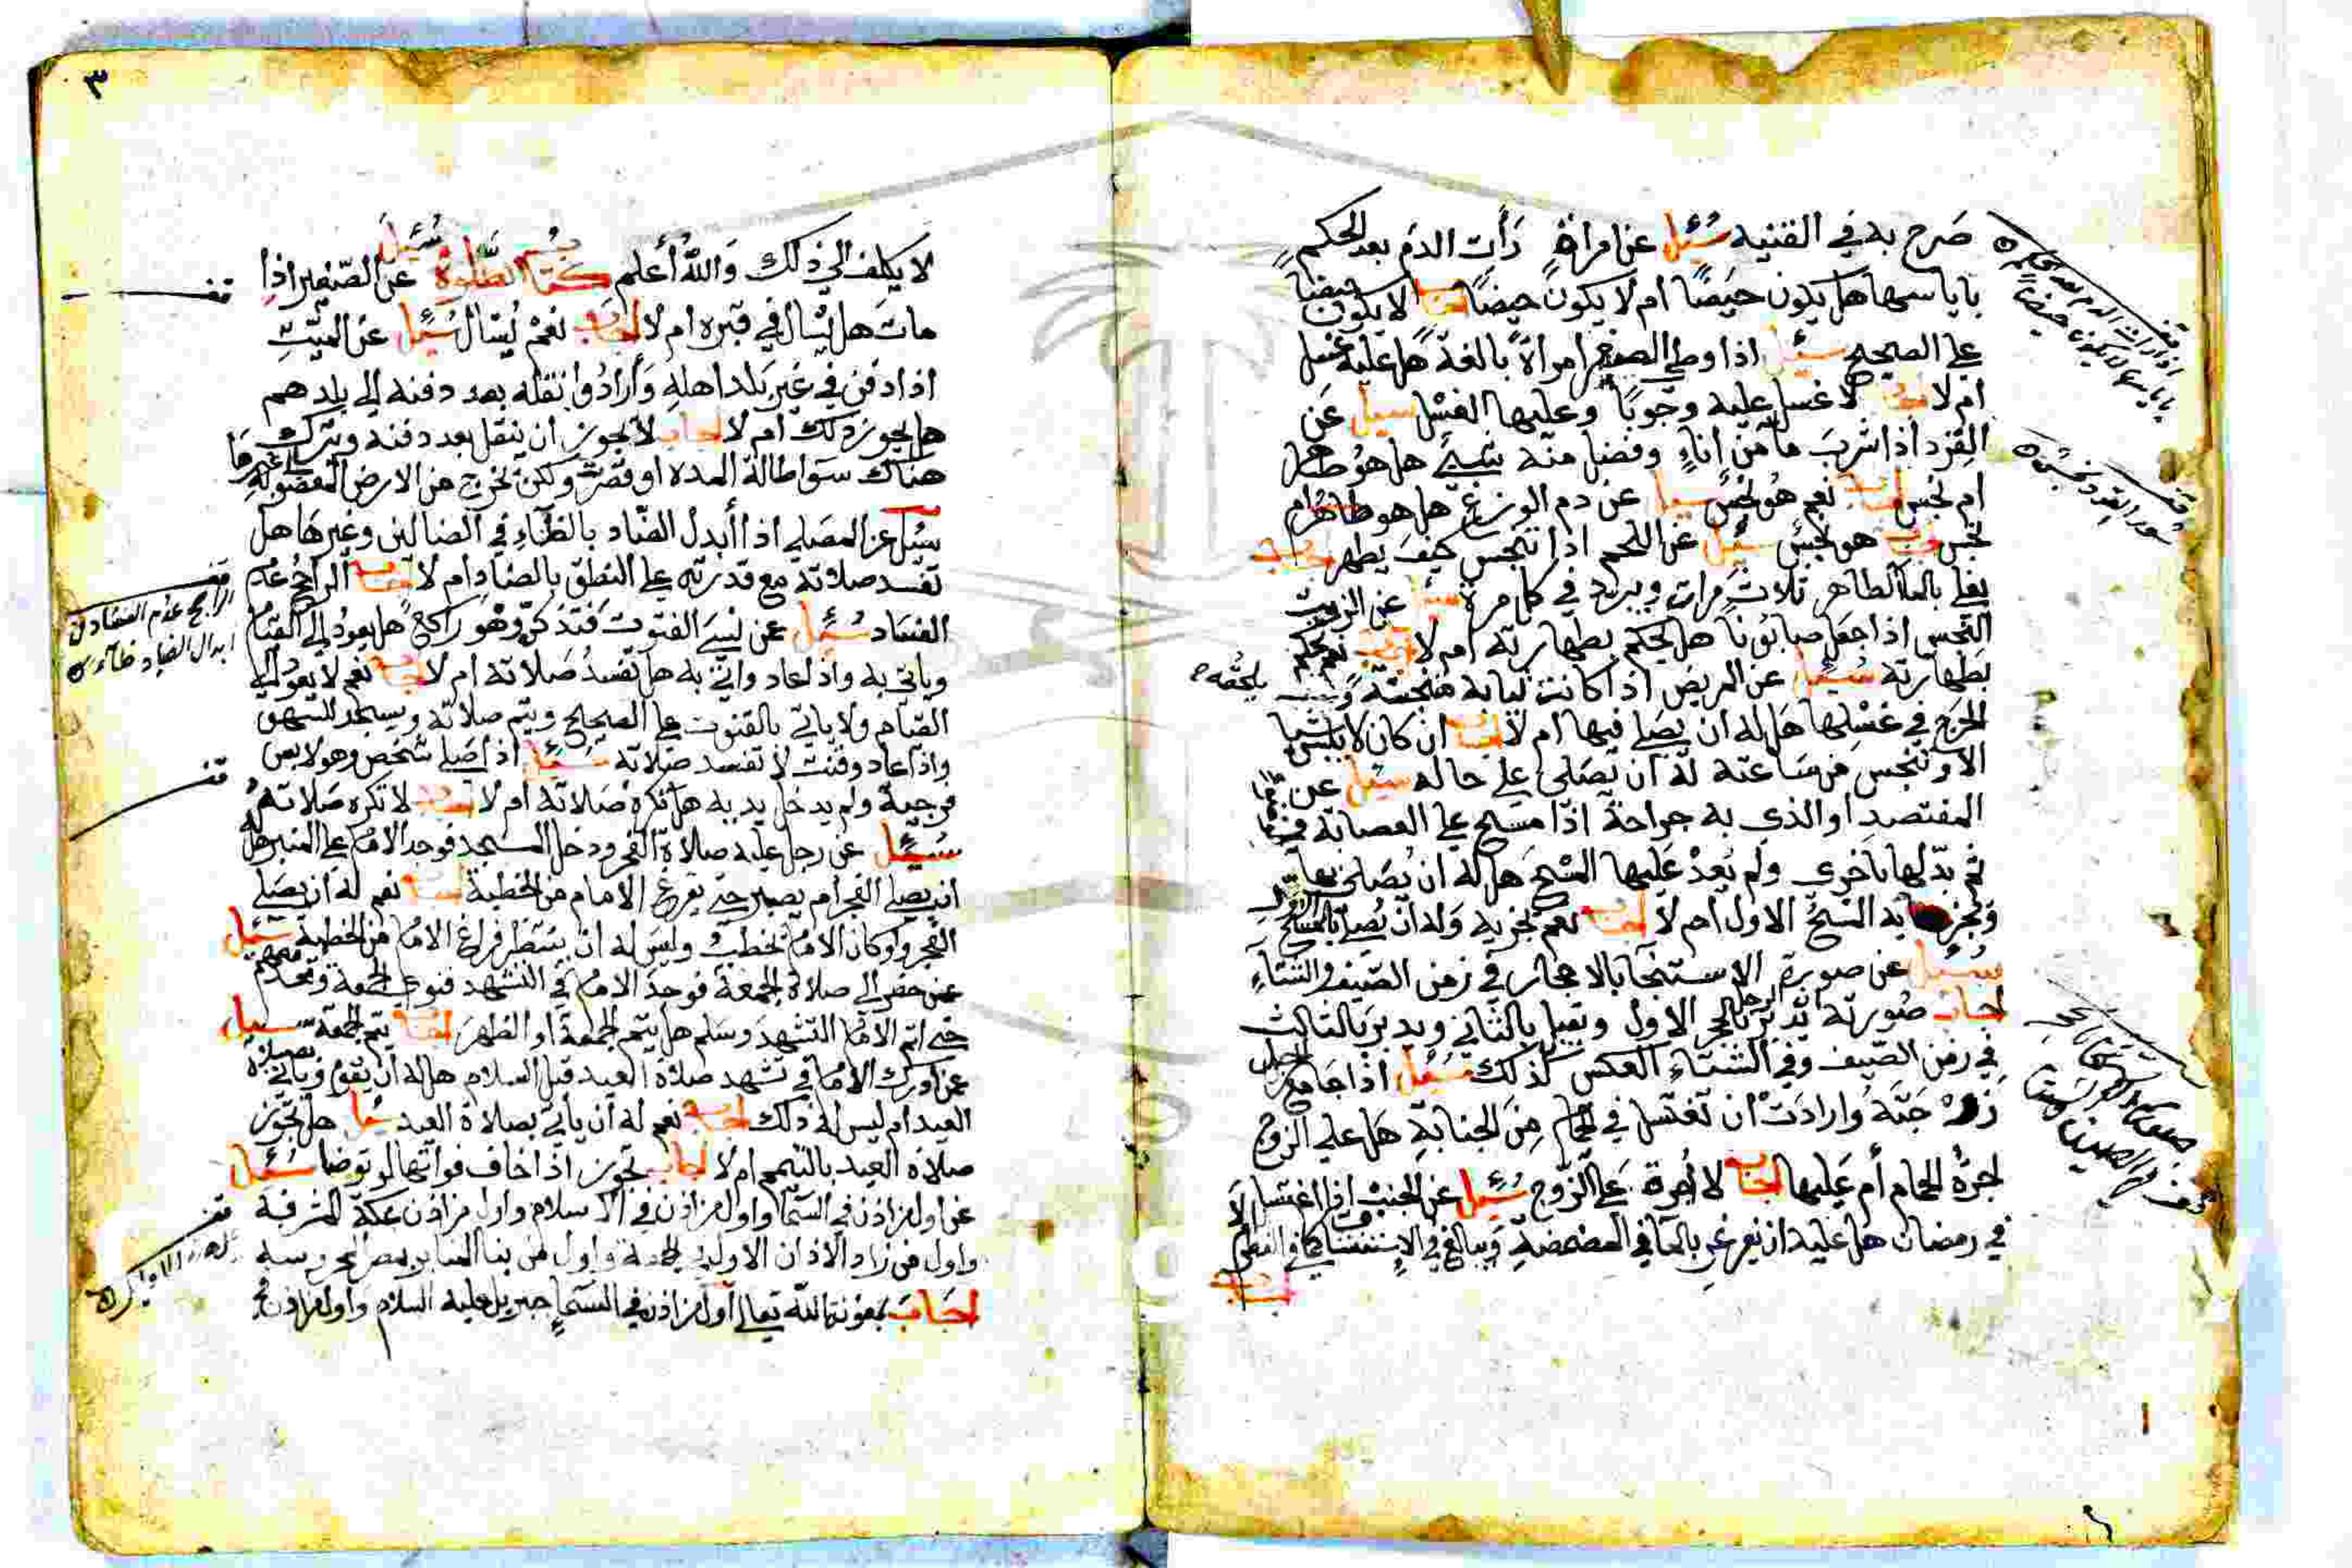 صرح به في القنيه سُئِل عن امراة رَأت الدم بعد الحكم
باياسها هل يكون حيضًا ام لا يكون حيضًا اجاب لا يكون حيضا
على الصحيح سئل اذا وطي الصغير امراة بالغة هل عليه غسل
ام لا اجاب لا غسل عليه وجوبًا وعليها الغسل سيل عن
القرد اذا شرب ما من اناءٍ وفضل منه شيئ هل هو طاهر
ام نجس اجاب نعم هو نجس سيل عن دم الوزغ هل هو طاهر ام
نجس اجاب هو نجس سئل عن اللحم اذا تنجس كيف يطهر اجاب
يغلي بالماء الطاهر ثلاث مرات ويبرد في كل مرة سئل عن الزيت
النجس اذا جعل صابونا هل يحكم بطهارته ام لا اجاب نعم يحكم
بطهارته سُئِل عن المريض اذا كانت ثيابه منجسة و يلحقه
الحرج في غسلها هل له ان يصلي فيها ام لا اجاب ان كان لا يلبس شيا
الا وتنجس من ساعته له ان يصلي على حاله سيل عن
المفتصد او الذي به جراحة اذا مسح على العصابة
ثم بدلها باخرى ولم يعد عليها المسح هل له ان يصلي بها
ويجزيه المسح الاول ام لا اجاب نعم يجزيه وله ان يصلي بالمسح الاول
سُئِل عن صورة الاستنجا بالاحجار في زمن الصيف والشتاء
اجاب صورته يدبر الرجل بالحجر الاول ويقبل بالثاني ويدبر بالثالث
في زمن الصيف وفي الشتاء العكس كذلك سُئِل اذا جامع الرجل
زوجته وارادت ان تغتسل في الحمام من الجنابة هل على الزوج
اجرة الحمام أم عليها اجاب لا اجرة على الزوج سُئِل عن الجنب اذا اغتسل
في رمضان هل عليه ان يغرغر بالماء في المضمضة ويبالغ في الاستنشاق كما في الفطر
اجاب
قف
اذا رات الدم بعد الحكم
باياسها لا يكون حيضا
قف
سور القرد نجس
٣
لا يكلف الى ذلك والله أعلم كتاب الصلوة سُئِل عن الصغير اذا
مات هل يسال في قبره ام لا اجاب نعم يُسال سُئِل عن الميت
اذا دفن في غير بلد اهله وأرادوا نقله بعد دفنه الى بلدهم
هل يجوز ذلك ام لا اجاب لا يجوز ان ينقل بعد دفنه ويترك
هناك سوا طالة المدة او قصرت ولكن يخرج من الارض المغصوبة
سئل عن المصلي اذا أبدل الضاد بالظاء في الضالين وغيرها هل
تفسد صلاته مع قدرته على النطق بالضاد ام لا اجاب الراجح عدم
الفساد سُئِل عن نسي القنوت فتذكره وهو راكع هل يعود الى القيام
وياتي به واذا عاد واتى به هل تفسد صلاته ام لا اجاب نعم لا يعود الى
القيام ولا ياتي بالقنوت على الصحيح ويتم صلاته ويسجد للسهو
واذا عاد وقنت لا تفسد صلاته سئل اذا صلي شخص وهو لابس
فرجية ولم يدخل يديه هل تكره صلاته ام لا اجاب لا تكره صلاته
سُئِل عن رجل عليه صلاة الفجر ودخل المسجد فوجد الامام على المنبر هل
ان يصلي الفجر ام يصبر حتى يفرغ الامام من الخطبة اجاب نعم له ان يصلي
الفجر ولو كان الامام يخطب وليس له ان ينتظر فراغ الامام من الخطبة سئل
عمن حضر الى صلاة الجمعة فوجد الامام في التشهد فنوى الجمعة وقعد معهم
حتى اتم الامام التشهد وسلم هل يتم الجمعة او الظهر اجاب يتم الجمعة سيل
عمن ادرك الامام في تشهد صلاة العيد قبل السلام هل له أن يقوم وياتي بصلاة
العيد ام ليس له ذلك اجاب نعم له أن يأتي بصلاة العيد سئل هل تجوز
صلاة العيد بالتيمم ام لا اجاب تجوز اذا خاف فواتها لو توضا سُئل
عن اول من اذن في السما واول من اذن في الاسلام واول من اذن بمكة المشرفة
واول من زاد الاذان الاول في الجمعة واول من بنا المنابر بمصر المحروسه
اجَابَ بمعونة الله تعالى أول من اذن في السماء جبريل عليه السلام واول من اذن
قف
قف
الراجح عدم الفساد في
ابدال الضاد ظاء
قف
قف